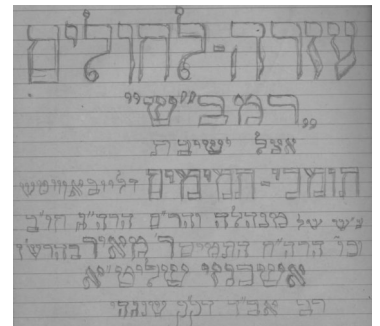 עזרה-לחולים
„רמב"ש"
אצל ישיבת
תומכי-תמימים דליובאוויטש
ע"ש של מנהלה והר"ם הרה"ג חו"ב
וכו' הרה"ח התמים ר' מאיר
אשכנזי שליט"א
רב אב"ד דק"ק שנגהי